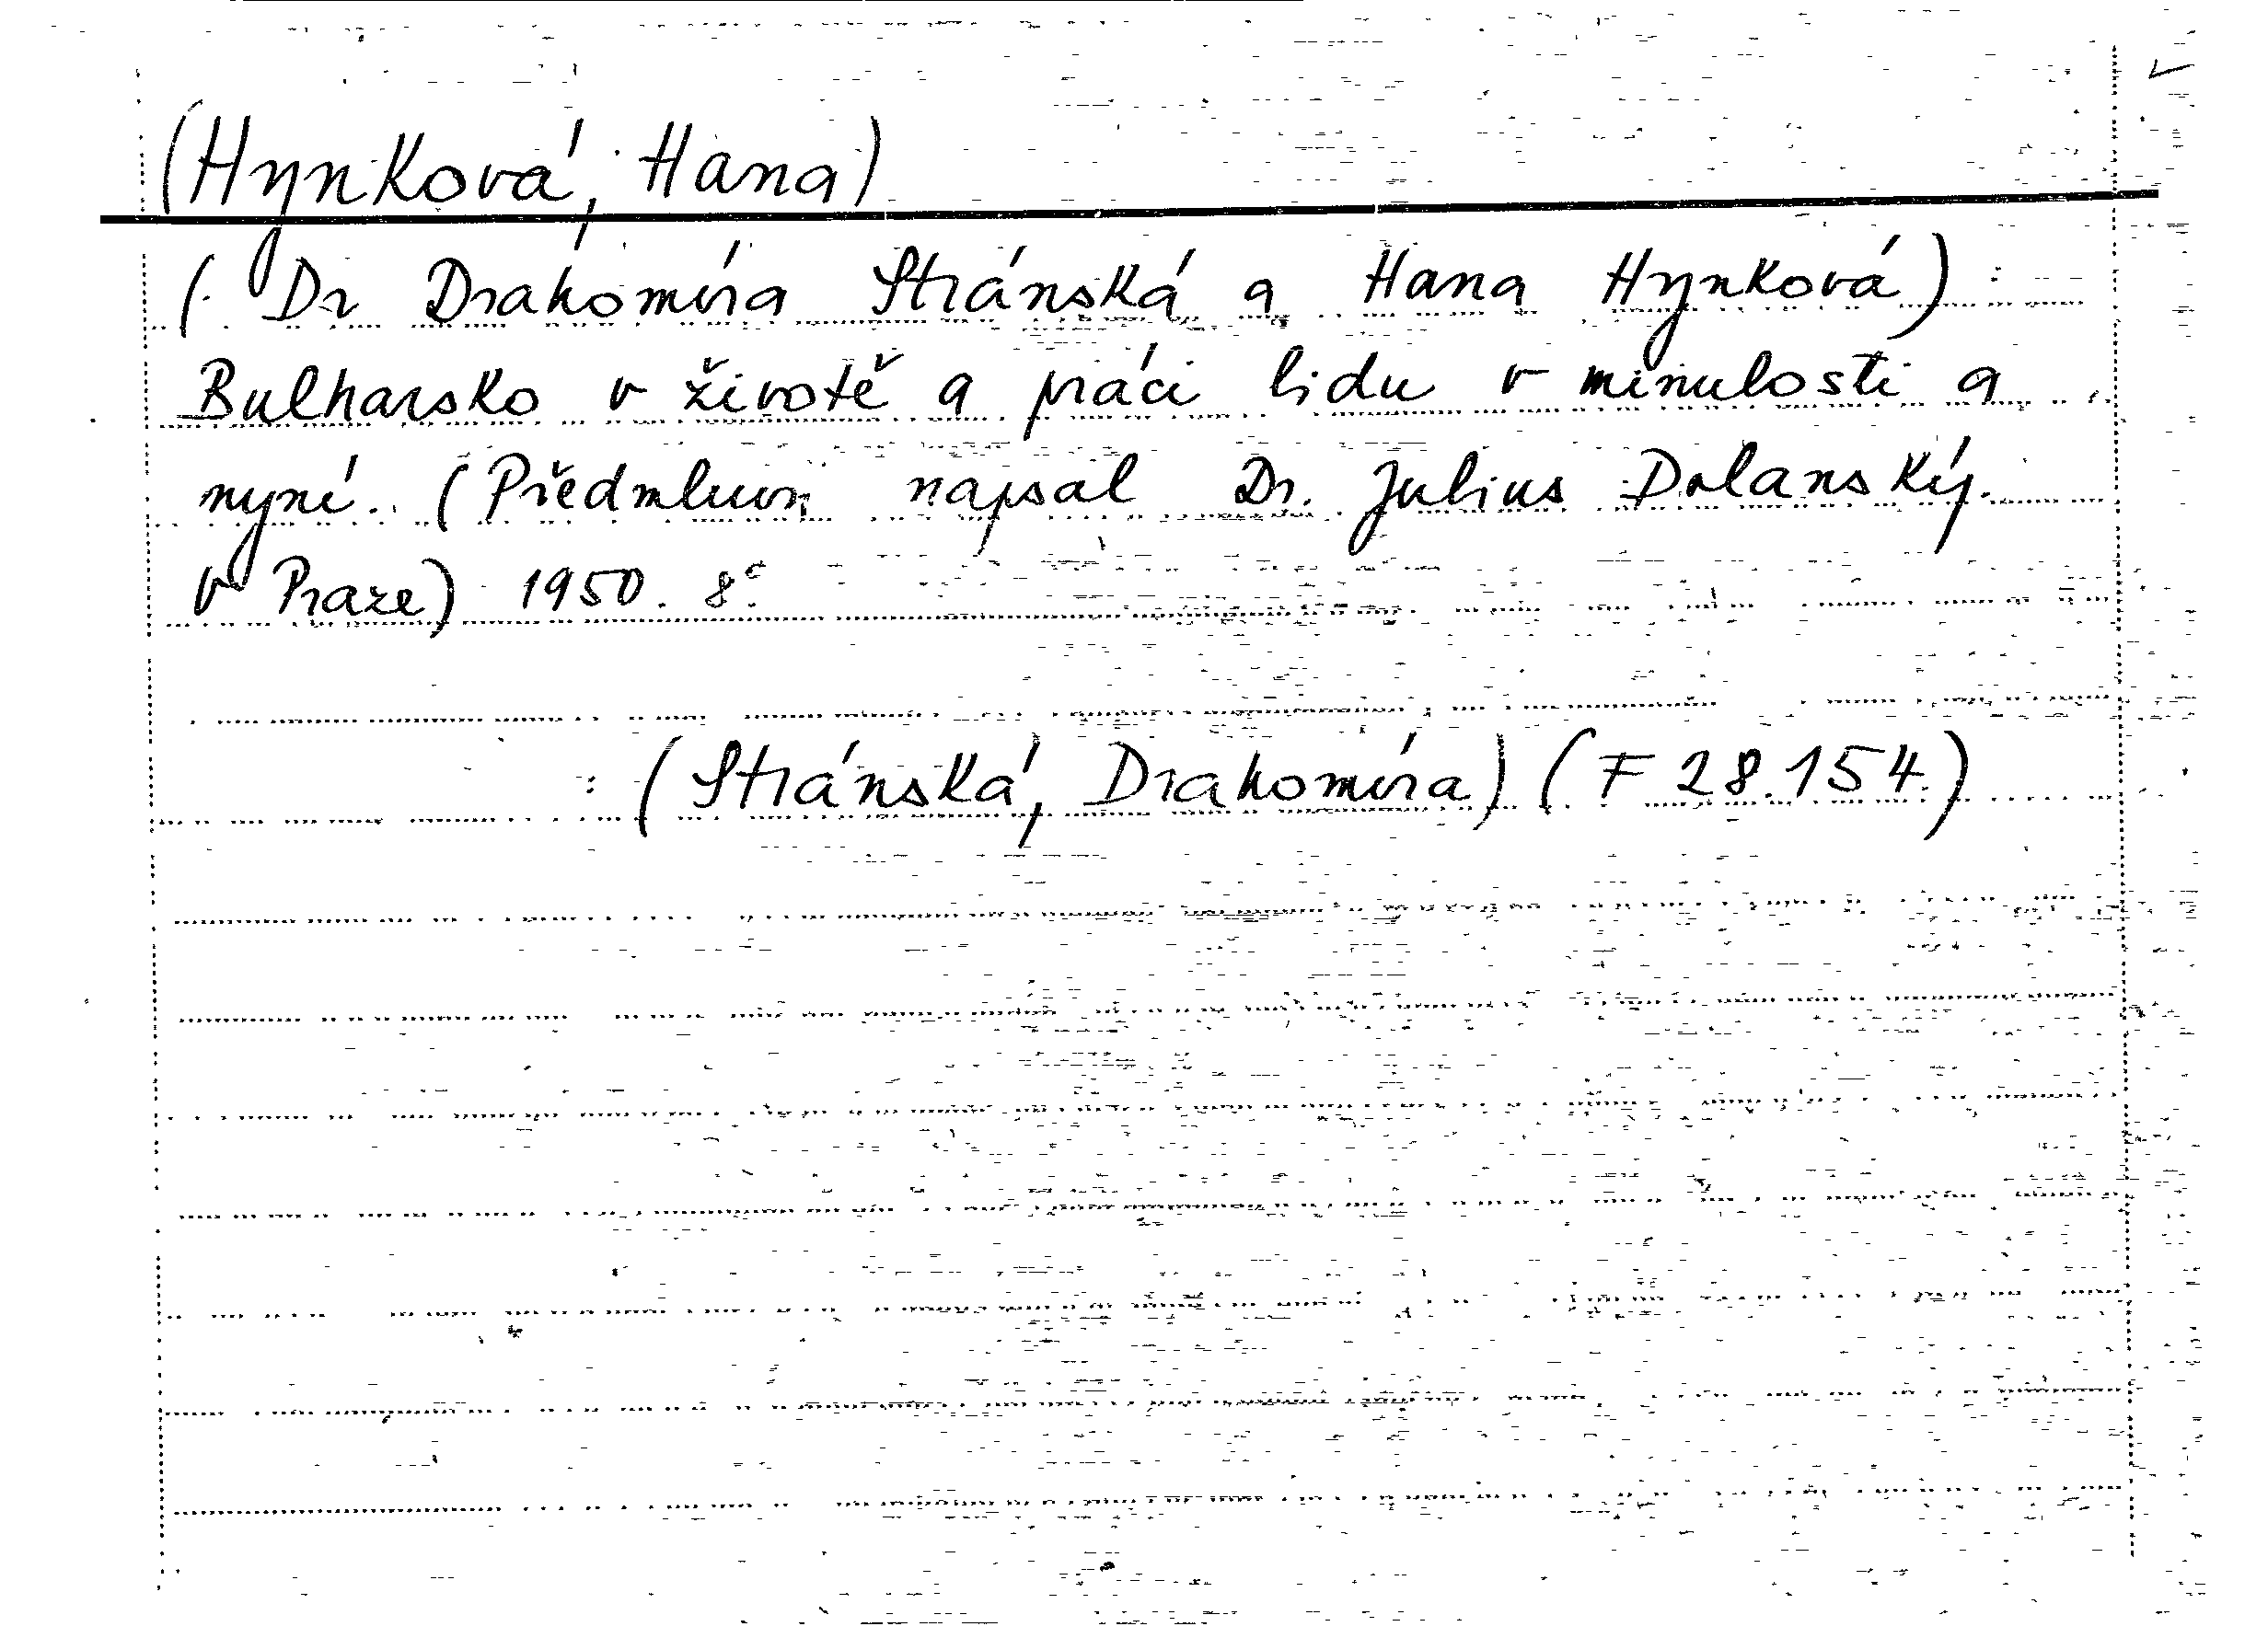 (Hynková, Hana)
(Dr Drahomíra Stránská a Hana Hynková) :
Bulharsko v životě a práci lidu v minulosti a
nyní. (Předmluvu napsal Dr. Julius Dolanský.
V Praze) 1950. 8°.
: (Stránská, Drahomíra) (F 28.154.)